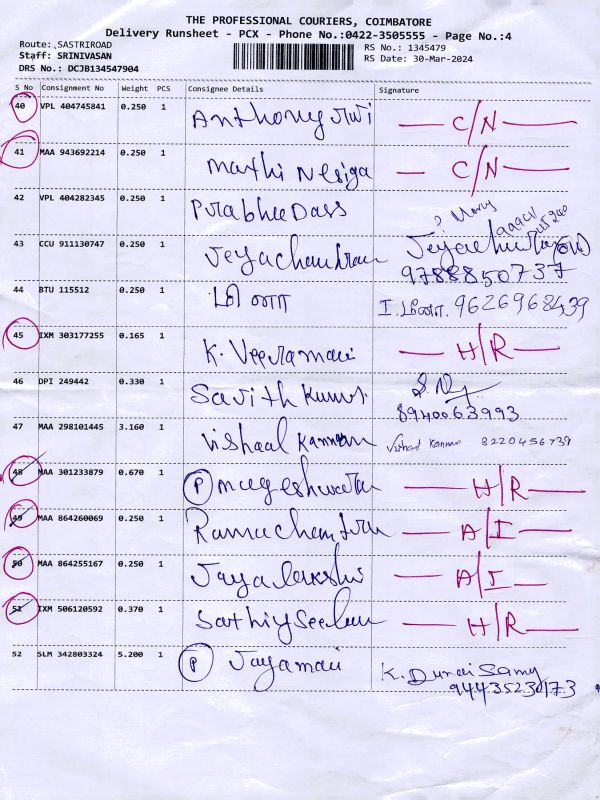 THE PROFESSIONAL COURIERS, COIMBATORE
Delivery Runsheet - PCX - Phone No.:0422-3505555 - Page No.:4
Route: ,SASTRIROAD RS No.: 1345479
Staff: SRINIVASAN RS Date: 30-Mar-2024
DRS No.: DCJB134547904
S No Consignment No Weight PCS Consignee Details Signature
40 VPL 404745841 0.250 1 Anthony C/N
41 MAA 943692214 0.250 1 Mathi Nesiga C/N
42 VPL 404282345 0.250 1 Prabhu Dass
43 CCU 911130747 0.250 1 Jeyachandran
9788850737
44 BTU 115512 0.250 1 மீனா I. மீனா. 9626968439
45 IXM 303177255 0.165 1 K. Veeramani H/R
46 DPI 249442 0.330 1 Savith Kumar
8940063993
47 MAA 298101445 3.160 1 Vishaal Kannan Vishaal Kannan 8220456739
48 MAA 301233879 0.670 1 P Mugeshwaran H/R
49 MAA 864260069 0.250 1 Ramachandran A/I
50 MAA 864255167 0.250 1 Jayalakshi A/I
51 IXM 506120592 0.370 1 H/R
52 SLM 342803324 5.200 1 P Jayamani K. Duraisamy
94435230173